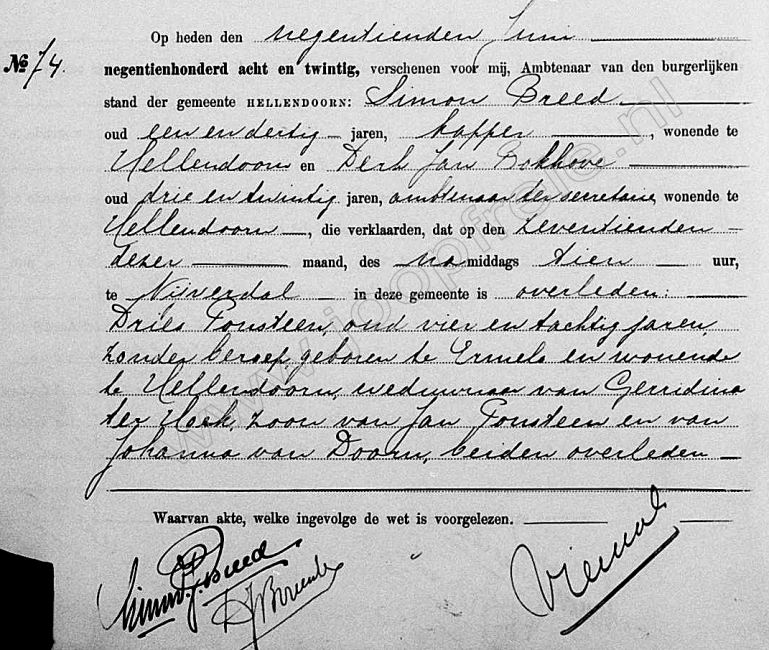 Op heden den negentienden Juni
No 74.
negentienhonderd acht en twintig, verschenen voor mij, Ambtenaar van den burgerlijken
stand der gemeente HELLENDOORN: Simon Breed
oud een en dertig jaren, kapper, wonende te
Hellendoorn en Derk Jan Bokhove
oud drie en twintig jaren, ambtenaar ter secretarie, wonende te
Hellendoorn, die verklaarden, dat op den zeventienden
dezer maand, des namiddags tien uur,
te Nijverdal in deze gemeente is overleden:
Dries Fonsteen, oud vier en tachtig jaren,
zonder beroep, geboren te Ermelo en wonende
te Hellendoorn, weduwnaar van Gerridina
ter Hoek, zoon van Jan Fonsteen en van
Johanna van Doorn, beiden overleden
Waarvan akte, welke ingevolge de wet is voorgelezen.
Breed
www.joopfrele.nl